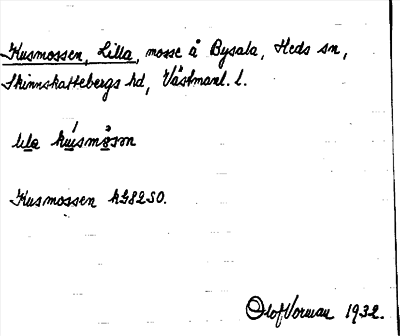 Kusmossen, Lilla, mosse å Bysala, Heds sn,
Skinnskattebergs hd, Västmanl. l.
lıla kúsmo̊sơn
Kusmossen kG82SO.
Olof Vorman 1932.